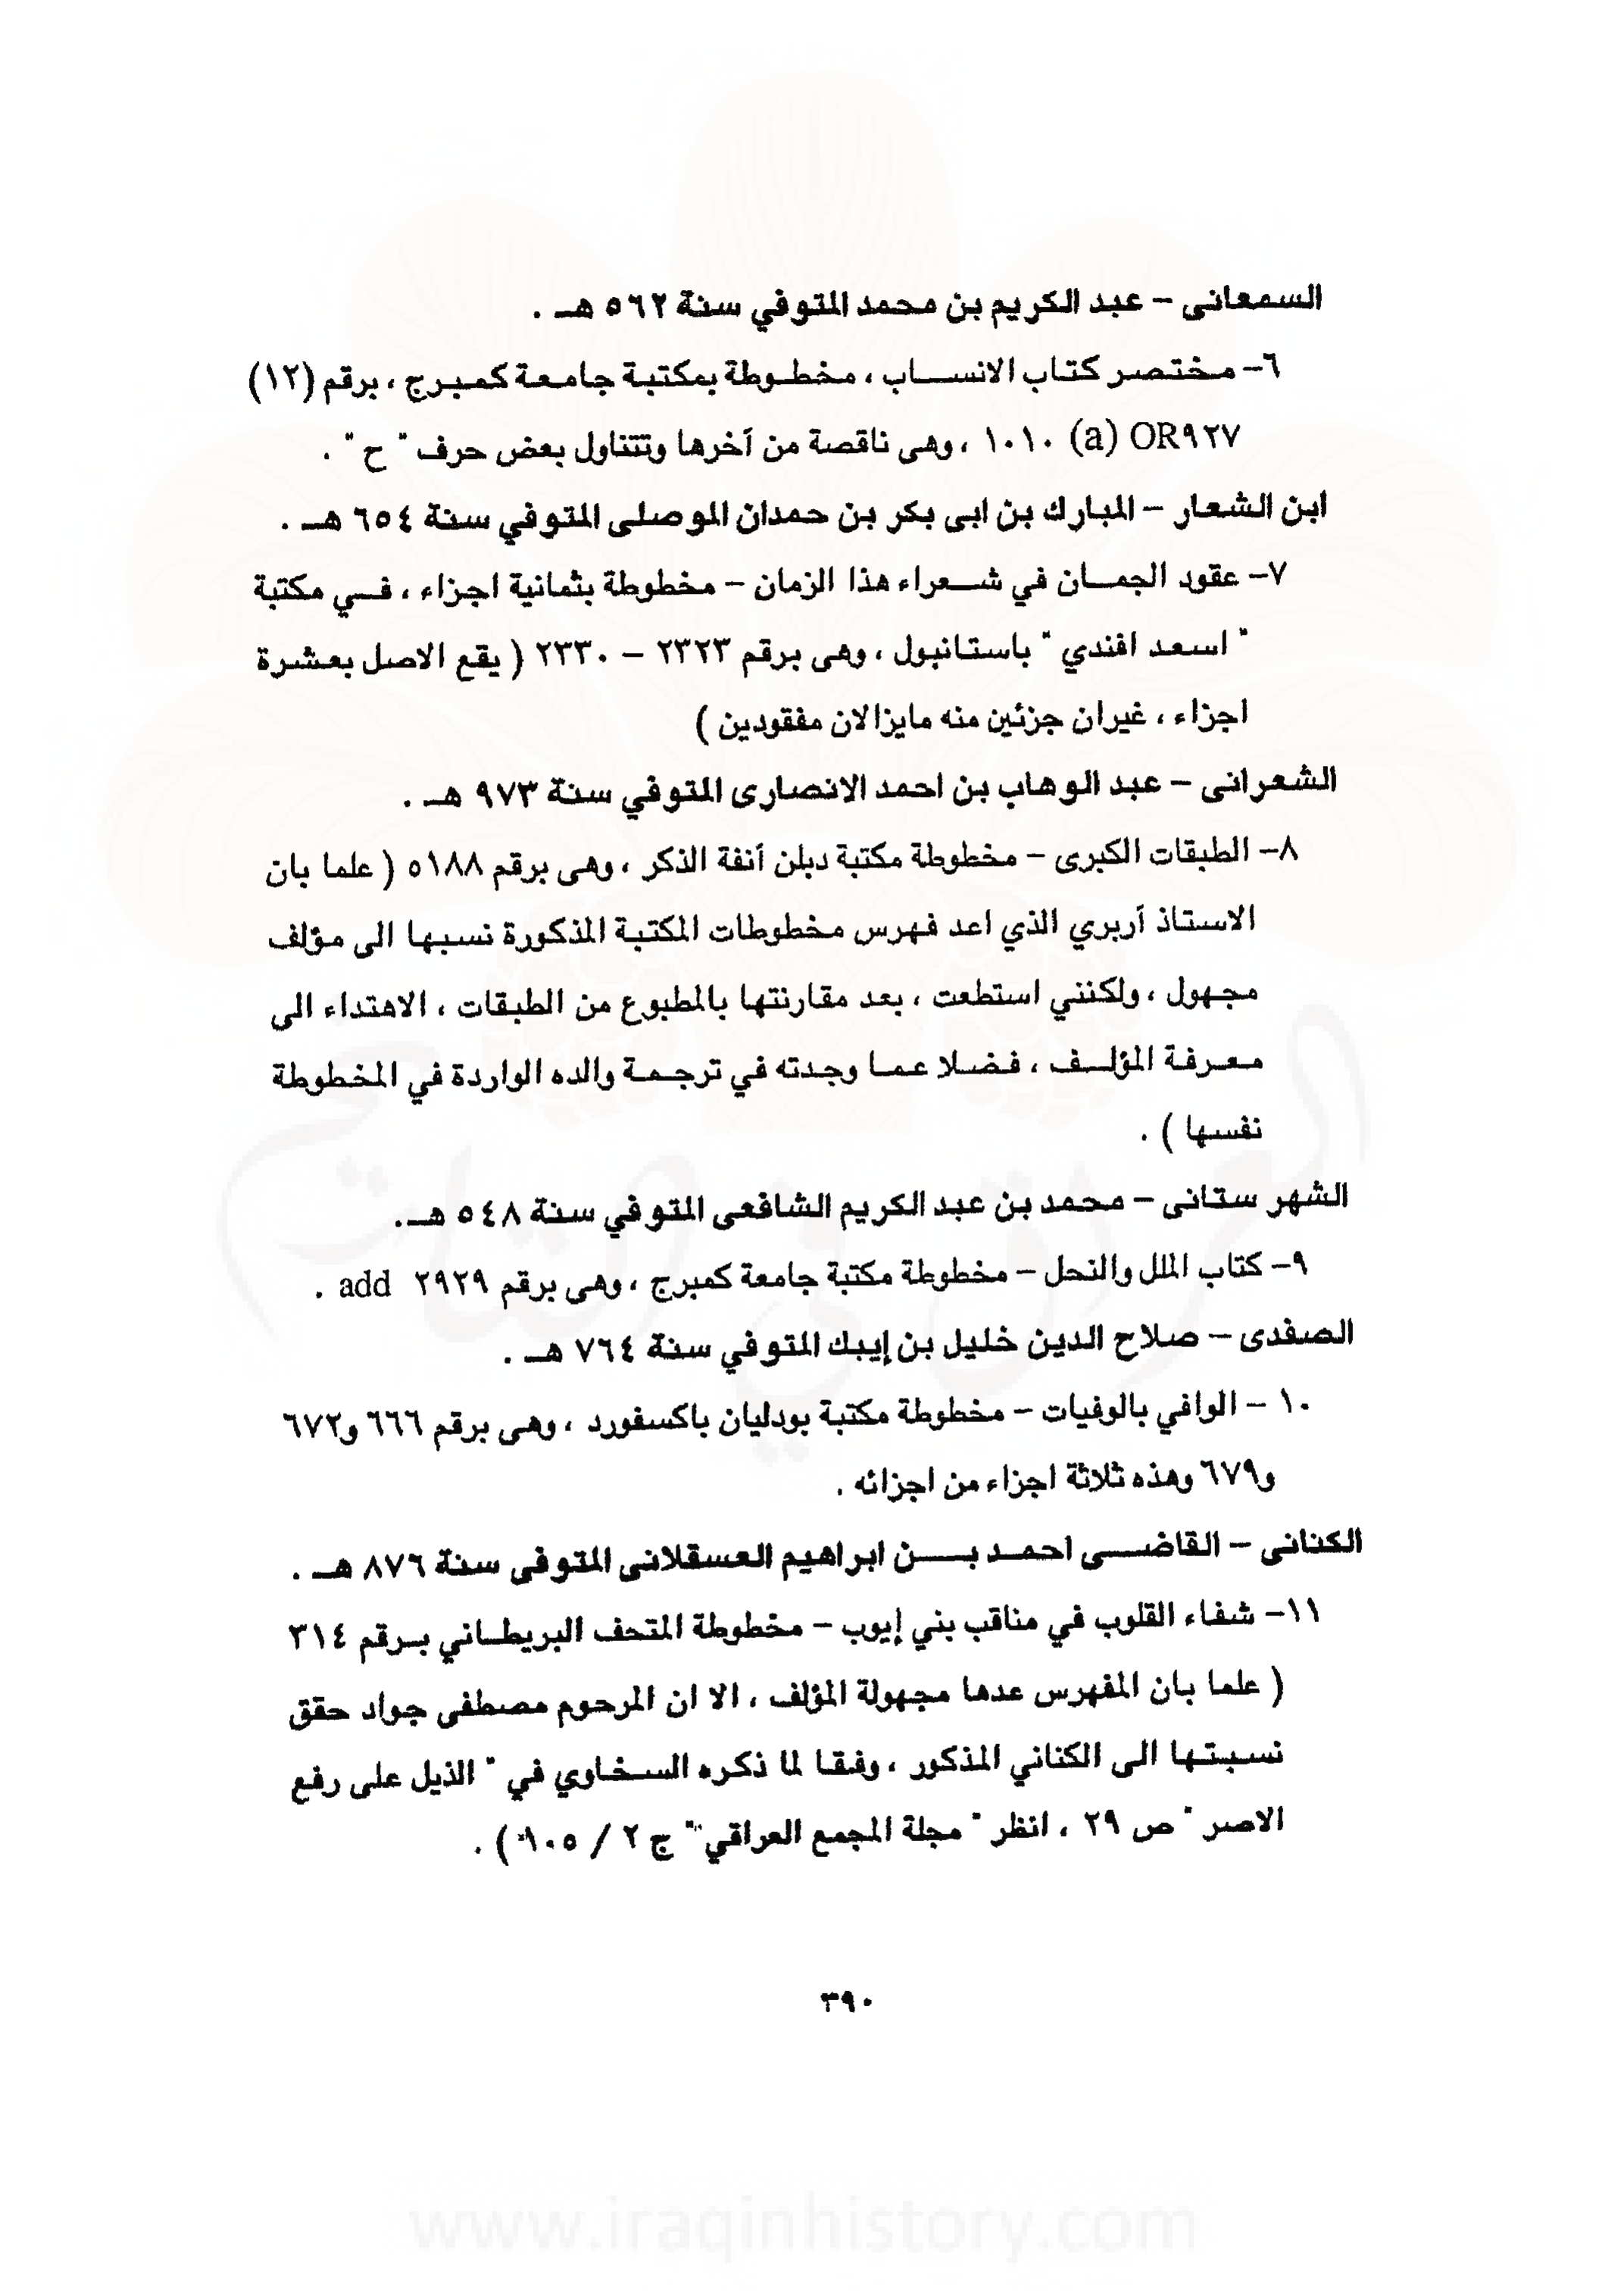 السمعانى – عبد الكريم بن محمد المتوفي سنة ٥٦٢ هـ .
٦– مختصر كتاب الانساب ، مخطوطة بمكتبة جامعة كمبرج ، برقم (١٢)
OR٩٢٧ (a) ١٠١٠ ، وهى ناقصة من آخرها وتتناول بعض حرف " ح " .
ابن الشعار – المبارك بن ابى بكر بن حمدان الموصلى المتوفي سنة ٦٥٤ هـ .
٧– عقود الجمان في شعراء هذا الزمان – مخطوطة بثمانية اجزاء ، في مكتبة
" اسعد افندي " باستانبول ، وهى برقم ٢٣٢٣ – ٢٣٣٠ ( يقع الاصل بعشرة
اجزاء ، غيران جزئين منه مايزالان مفقودين )
الشعرانى – عبد الوهاب بن احمد الانصارى المتوفي سنة ٩٧٣ هـ .
٨– الطبقات الكبرى – مخطوطة مكتبة دبلن آنفة الذكر ، وهى برقم ٥١٨٨ ( علما بان
الاستاذ آربري الذي اعد فهرس مخطوطات المكتبة المذكورة نسبها الى مؤلف
مجهول ، ولكنني استطعت ، بعد مقارنتها بالمطبوع من الطبقات ، الاهتداء الى
معرفة المؤلف ، فضلا عما وجدته في ترجمة والده الواردة في المخطوطة
نفسها ) .
الشهر ستانى – محمد بن عبد الكريم الشافعى المتوفي سنة ٥٤٨ هـ.
٩– كتاب الملل والنحل – مخطوطة مكتبة جامعة كمبرج ، وهى برقم ٢٩٢٩ add .
الصفدى – صلاح الدين خليل بن إيبك المتوفي سنة ٧٦٤ هـ .
١٠ – الوافي بالوفيات – مخطوطة مكتبة بودليان باكسفورد ، وهى برقم ٦٦٦ و٦٧٢
و٦٧٩ وهذه ثلاثة اجزاء من اجزائه .
الكنانى – القاضى احمد بن ابراهيم العسقلانى المتوفى سنة ٨٧٦ هـ .
١١– شفاء القلوب في مناقب بني إيوب – مخطوطة المتحف البريطاني برقم ٣١٤
( علما بان المفهرس عدها مجهولة المؤلف ، الا ان المرحوم مصطفى جواد حقق
نسبتها الى الكناني المذكور ، وفقا لما ذكره السخاوي في " الذيل على رفع
الاصر " ص ٢٩ ، انظر " مجلة المجمع العراقي " ج ٢ / ١٠٥ ) .
٣٩٠
العراق في التاريخ
www.iraqinhistory.com